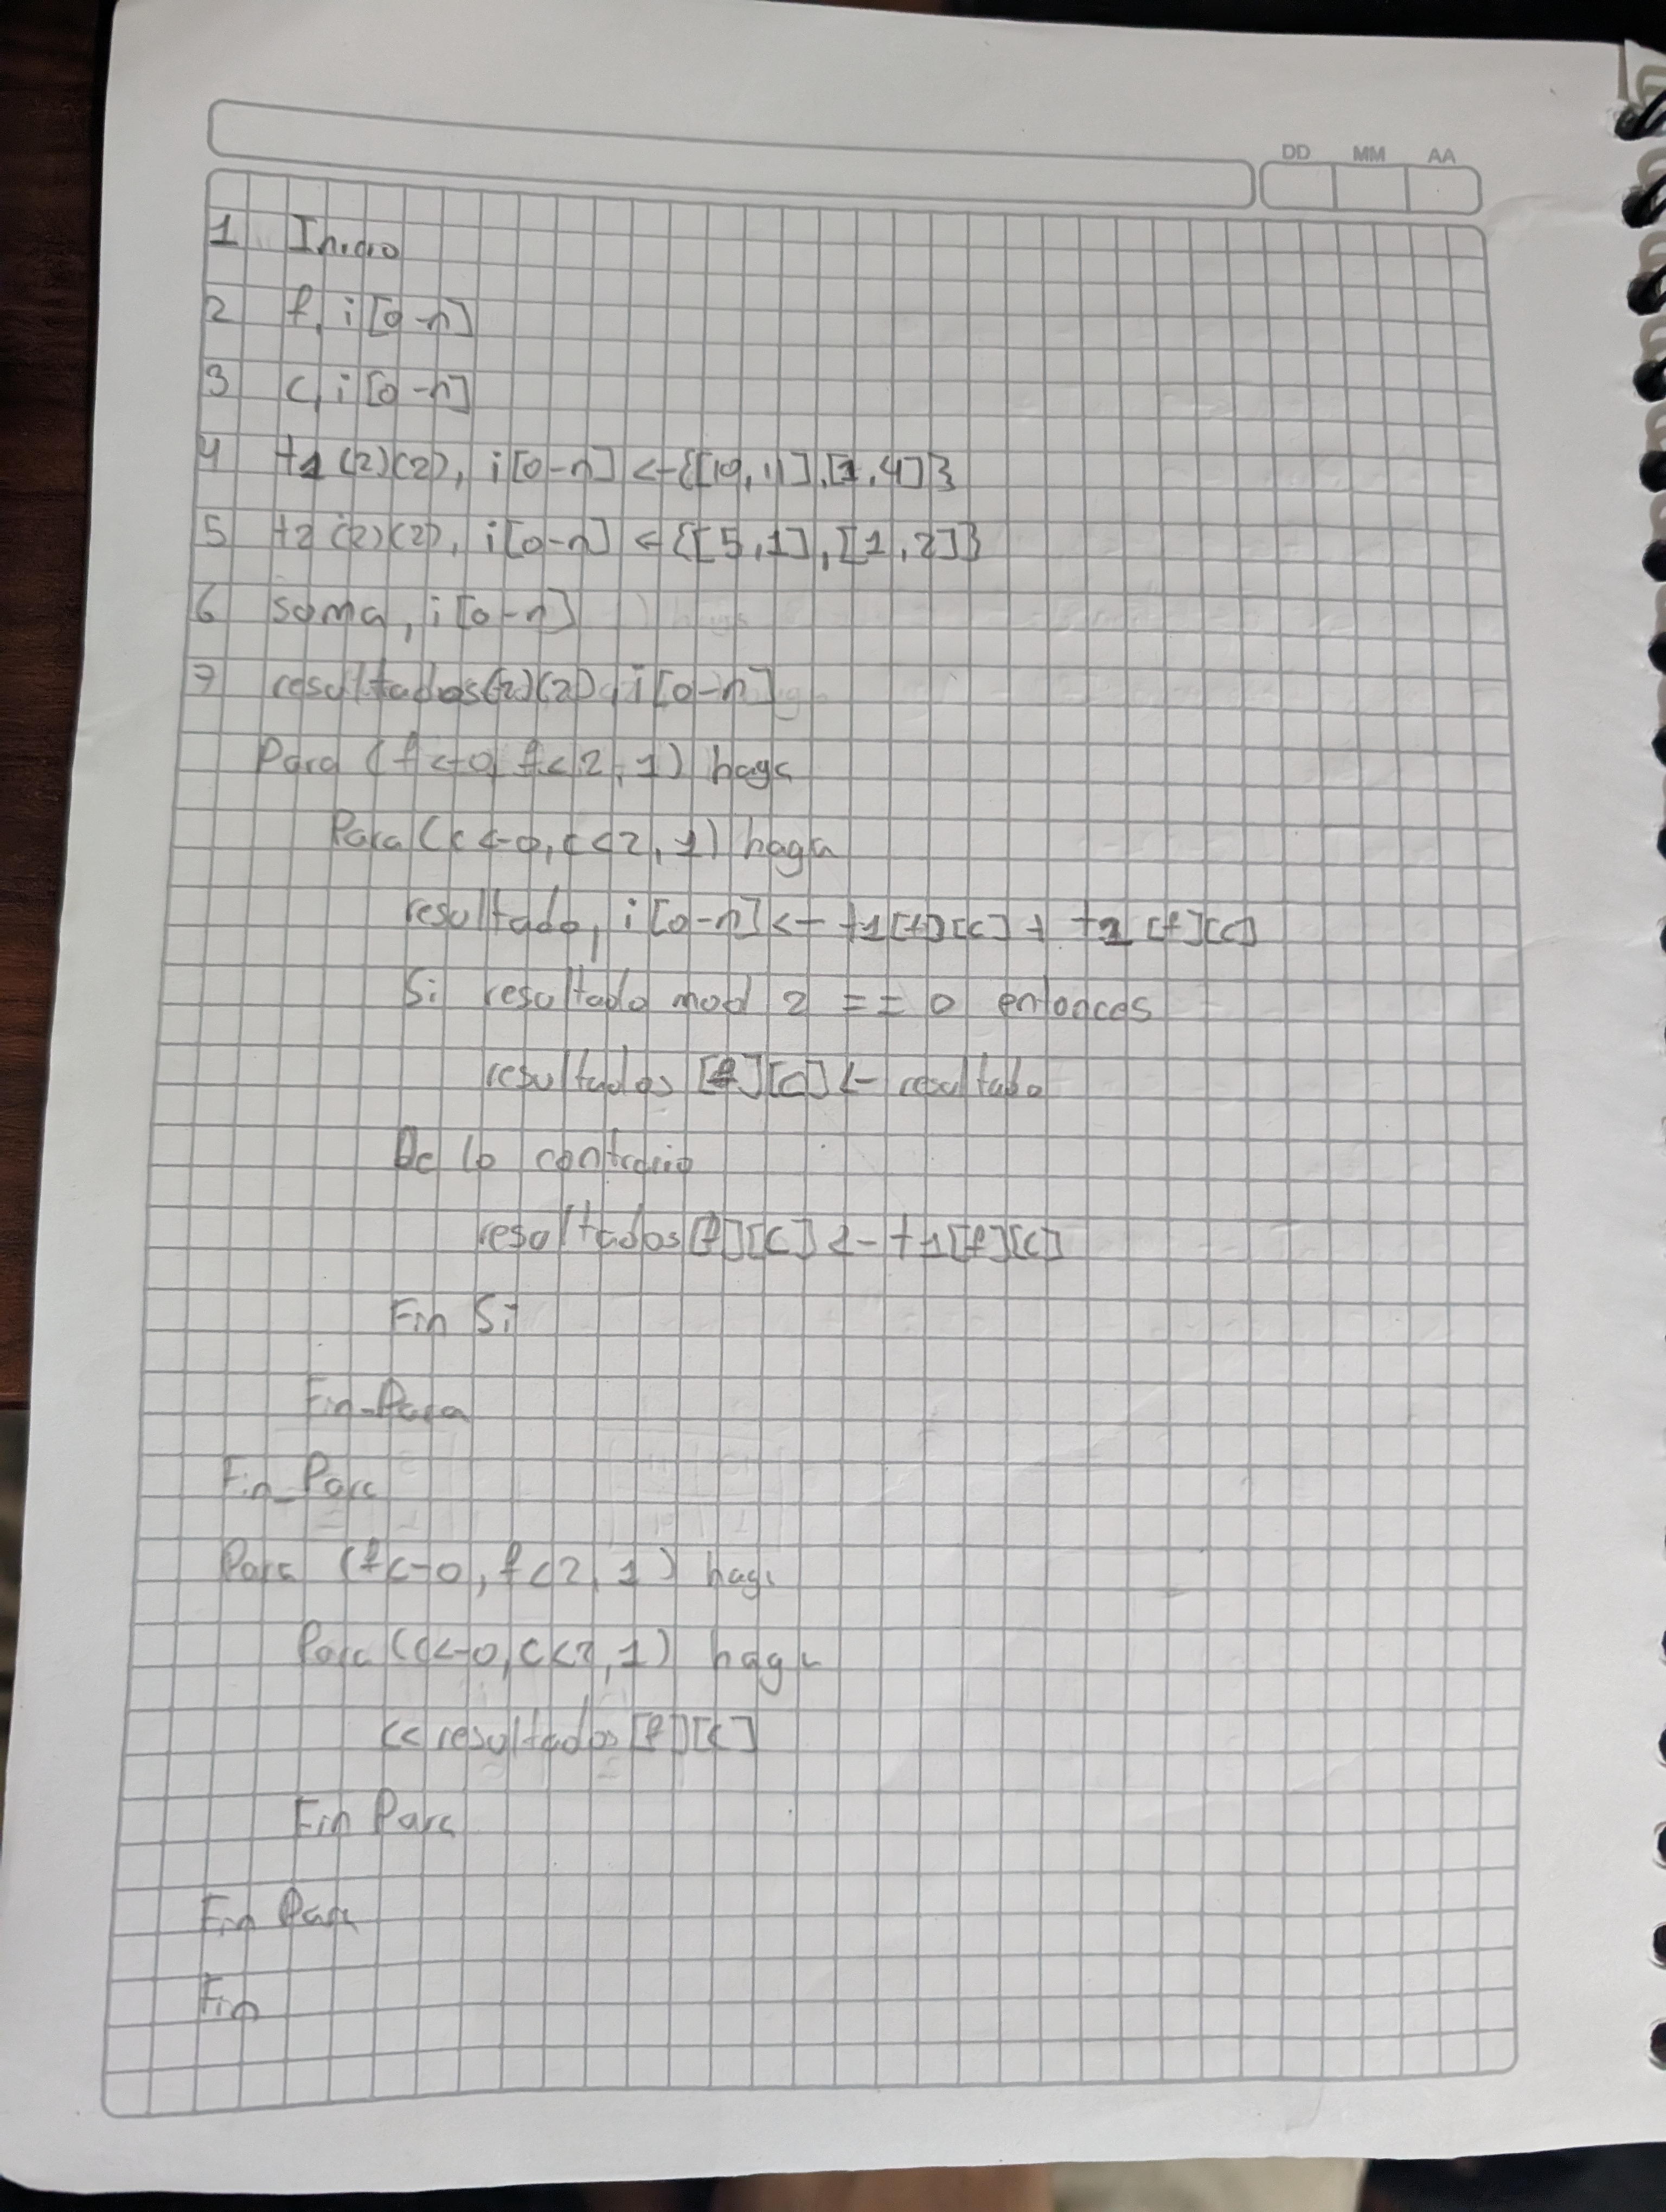 DD MM AA
1 Inicio
2 f, i[0-n]
3 c, i[0-n]
4 t1(2)(2), i[0-n] <-{[10,11],[1,4]}
5 t2(2)(2), i[0-n] <-{[5,1],[1,2]}
6 soma, i[0-n]
7 resultados(2)(2), i[0-n]
Para (f<-0, f<2, 1) haga
Para (c<-0, c<2, 1) haga
resultado, i[0-n] <- t1[f][c] + t2[f][c]
Si resultado mod 2 == 0 entonces
resultados [f][c] <- resultado
De lo contrario
resultados[f][c] <- t1[f][c]
Fin Si
Fin-Para
Fin_Para
Para (f<-0, f<2, 1) haga
Para (c<-0, c<2, 1) haga
<< resultados[f][c]
Fin Para
Fin Para
Fin